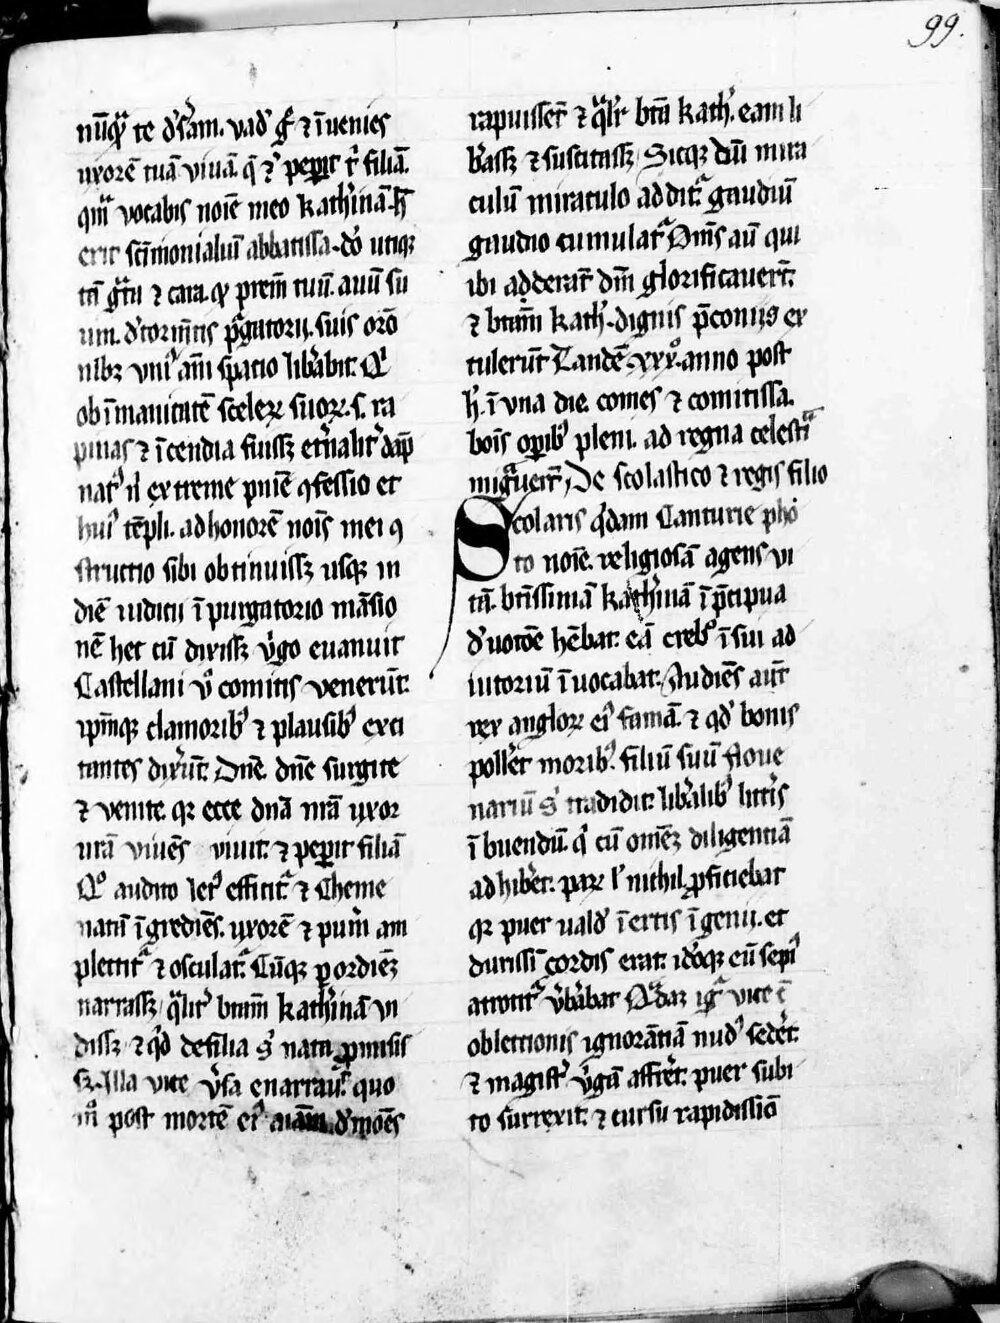 99.
nūq̄ te d̓s̓am. vad̓ g̊ ⁊ īuenies
uxorē tuā viuā. q̄ ⁊ pep̱it t̓ filiā.
qm̄ vocabis noīe meo kath̓inā. h̄
erit sc̄imonialiū abbatissa. d̓o utiqꝫ
tā g̊ta ⁊ cara. qꝫ pr̄em tuū. auū su
um. d̓torm̄tis pg̊atorij. suis orō
nibꝫ vni᷒ ani spatio lib̓abit. Qͥ
ob īmanitatē sceleꝝ suoꝝ. s. ra
pinas ⁊ īcendia fuissꝫ et̓nalit̓ dāp
nat᷒ n̄ extreme pn̄ie ꝯfessio et
hui᷒ tēpli. ad honorē noīs mei ꝯ
structio sibi obtinuissꝫ usqꝫ in
diē iudicij ī purgatorio māsio
nē hec cū dixissꝫ v̓go euanuit
Castellani v̊ comitis venerūt.
ip̄mqꝫ clamorib᷒ ⁊ plausib᷒ exci
tantes dix̓ūt. Dn̄e. dn̄e surgite
⁊ venite. qꝛ ecce dn̄a nr̄a uxor
ur̄a viuēs viuit. ⁊ pep̱it filiā
Qͦ audito let᷒ efficit̓ ⁊ Cheme
natū īgrediēs. uxorē ⁊ pu̓m am
plectit̓ ⁊ osculat̓. Cūqꝫ ꝑ ordiēꝫ
narrassꝫ q̊lit̓ btām kath̓inā vi
dissꝫ ⁊ qd̓ de filia s᷒ nata ꝓmisis
sꝫ. Illa vice v̓sa enarrau̓. quo
m̊ post mortē ei᷒ aīam. d̓mōes
rapuisset̄ ⁊ q̊lit̓ btā kath̓. eam li
b̓assꝫ ⁊ suscitassꝫ Sicqꝫ dum mira
culū miraculo addit̓. gaudiū
gaudio cumulat̓ Om̄s aū qui
ibi adderat̄ dm̄ glorificauert̄.
⁊ btām kath̓. dignis p̄coniis ex
tulerūt Tandē. xxxͦ. anno post
h̓. ī vna die. comes ⁊ comitissa.
boīs opib᷒ pleni. ad regna celestia
mig̊uert̄ De scolastico ⁊ regis filio
Scolaris q̊dam Canturie pho
to noīe. religiosā agens vi
tā. btīssimā kath̓inā ī p̄cipua
d̓uotōe hēbat. eā creb᷒ ī sui ad
iutoriū īuocabat. Audiēs aūt
rex angloꝝ ei᷒ famā. ⁊ qd̓ bonis
poll̓et morib᷒. filiū suū noue
nariū s᷒ tradidit. lib̓alib᷒ litt̓is
ībuendū. qͥ cū om̄eꝫ diligentiā
adhib̓et. paꝝ l̓ nichil ꝓficiebat
qꝛ puer uald̓ īertis īgenij. et
durissi cordis erat. id̓oqꝫ eū sepi᷒
atrotit̓ v̓b̓abat Q̊daꝫ ig̊ vice c̄
oblectionis ignorātiā nud᷒ sed̓et.
⁊ magist̓ v̓gā affr̓et. puer subi
to surrexit. ⁊ cursu rapidissiō